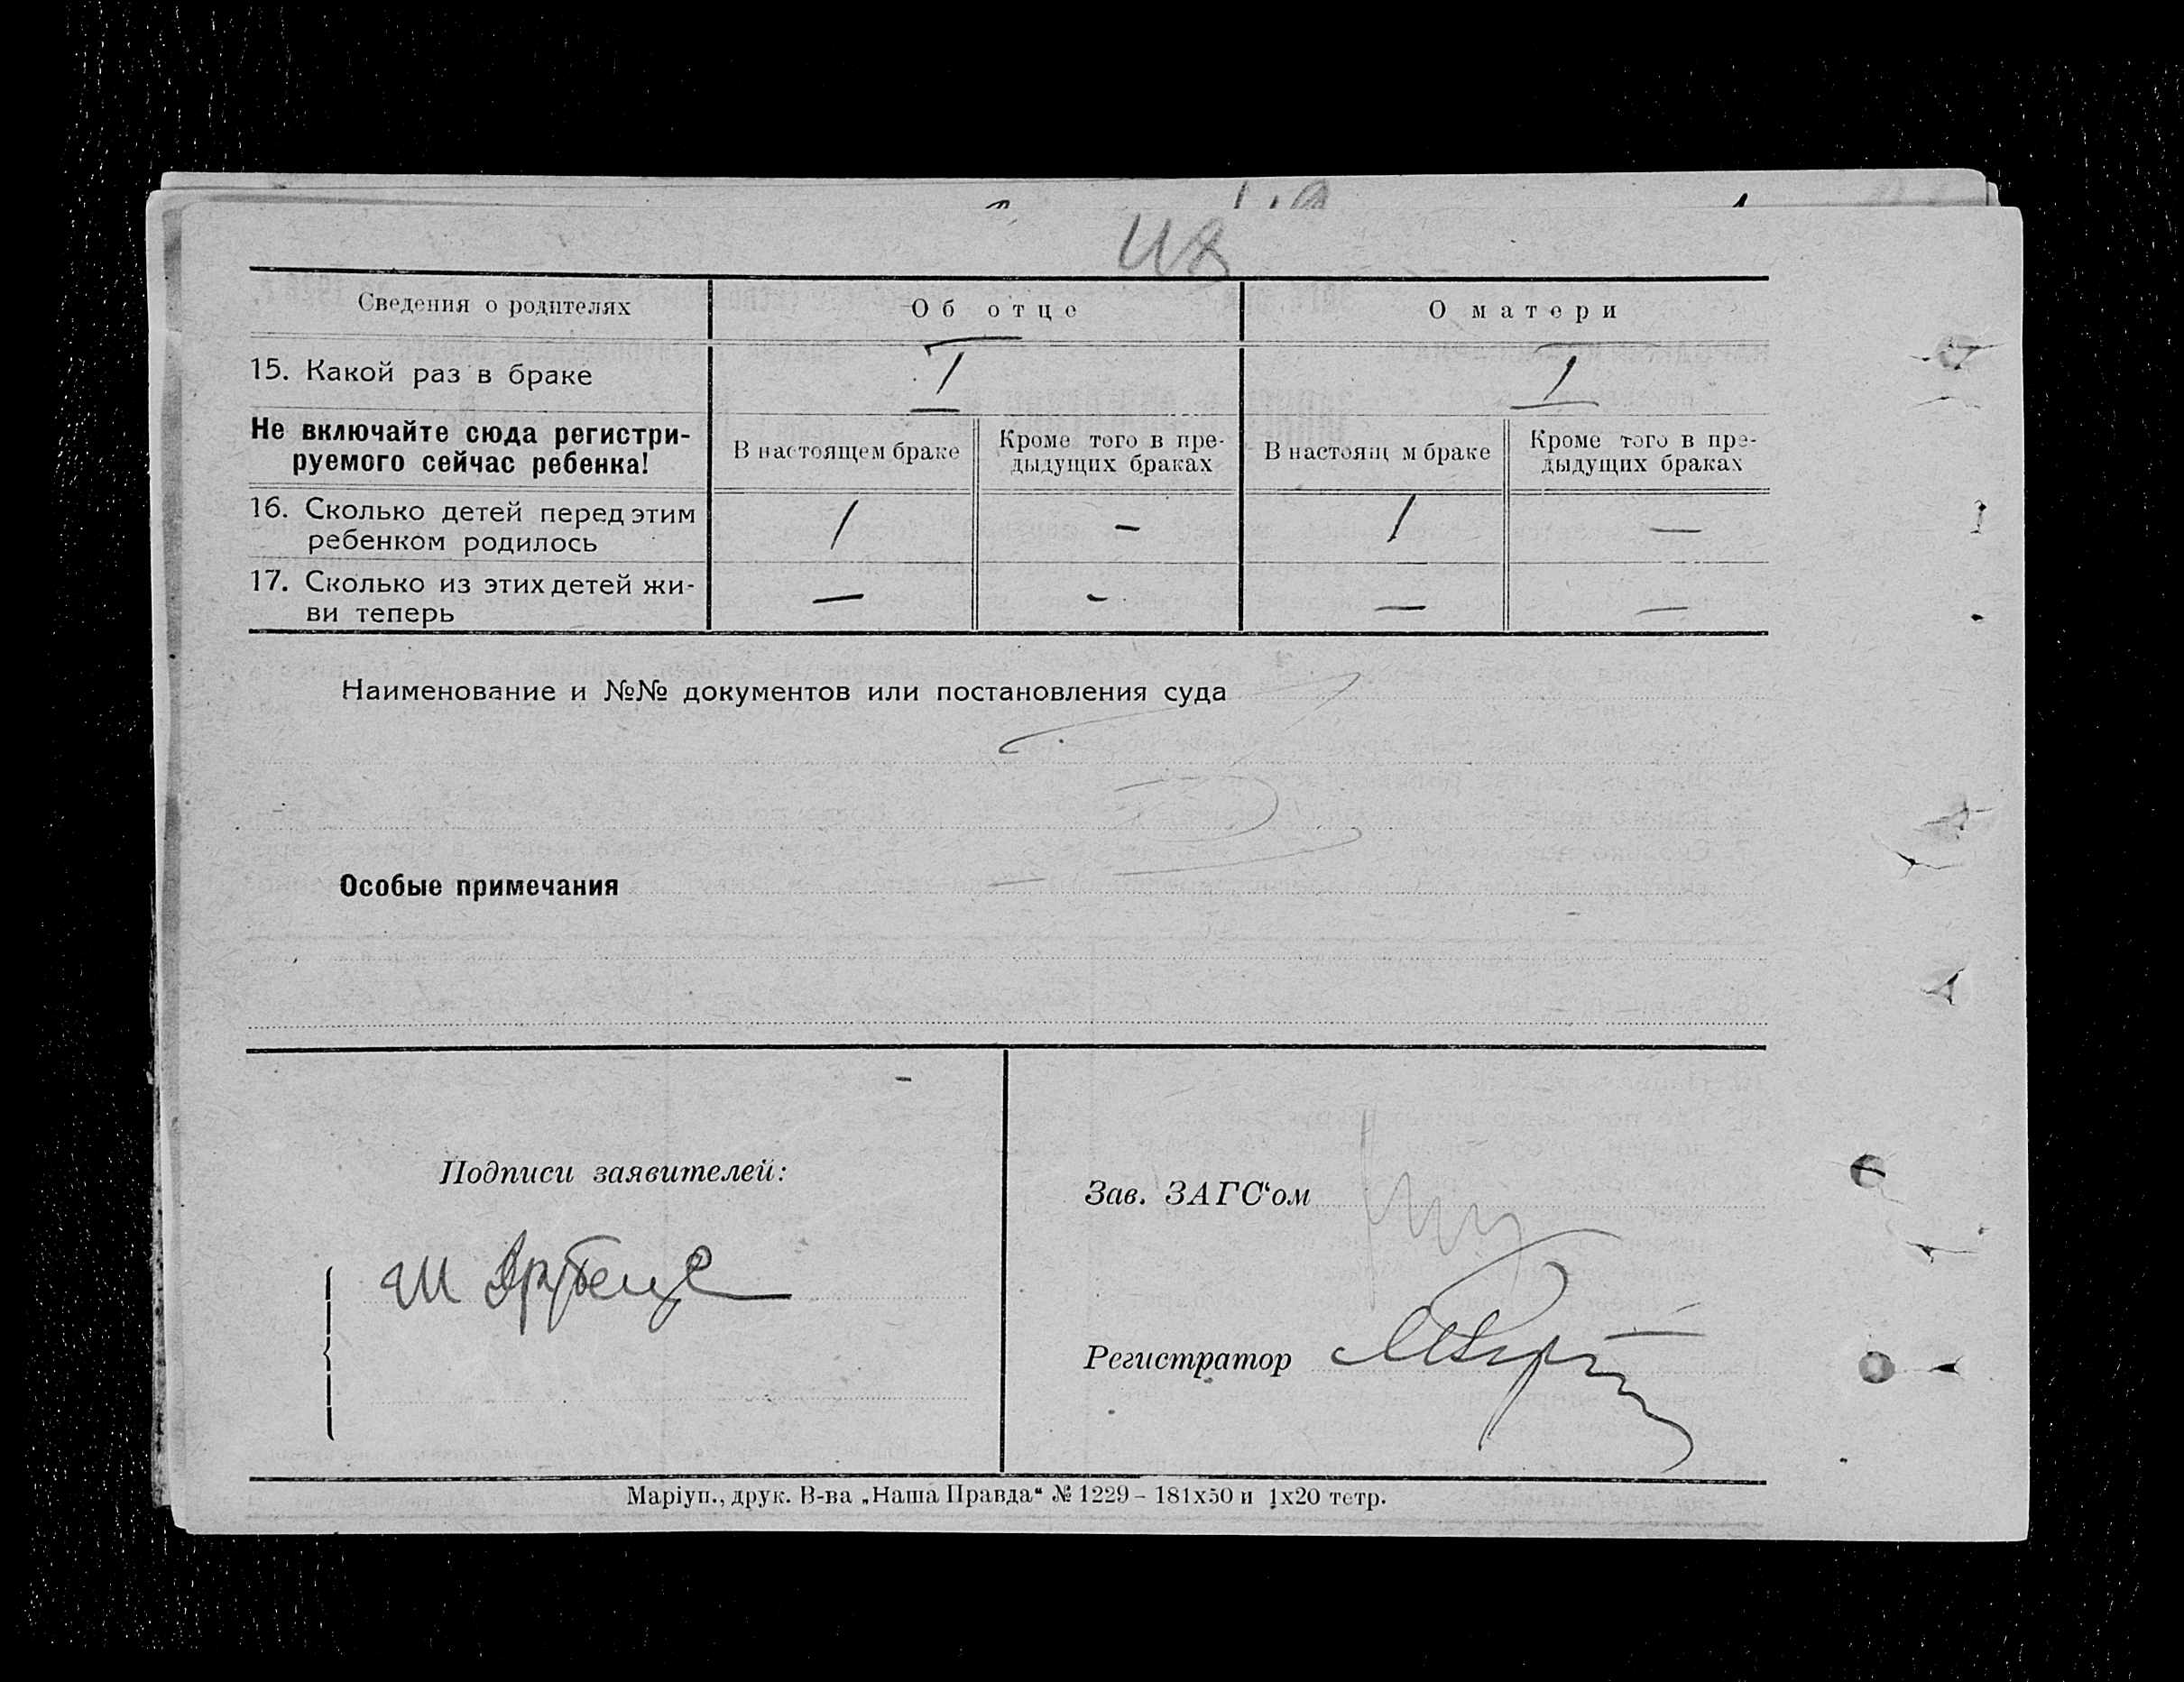 Сведения о родителях Об отце О матери
15. Какой раз в браке I I
Не включайте сюда регистри-
руемого сейчас ребенка!
В настоящем браке
Кроме того в пре-
дыдущих браках
В настоящ м браке
Кроме того в пре-
дыдущих браках
16. Сколько детей перед этим
ребенком родилось
1 - 1 —
17. Сколько из этих детей жи-
ви теперь
— - — —
Наименование и №№ документов или постановления суда
Особые примечания
Подписи заявителей:
Зав. ЗАГС‘ом
Регистратор
Маріуп., друк. В-ва „Наша Правда“ № 1229 – 181х50 и 1х20 тетр.